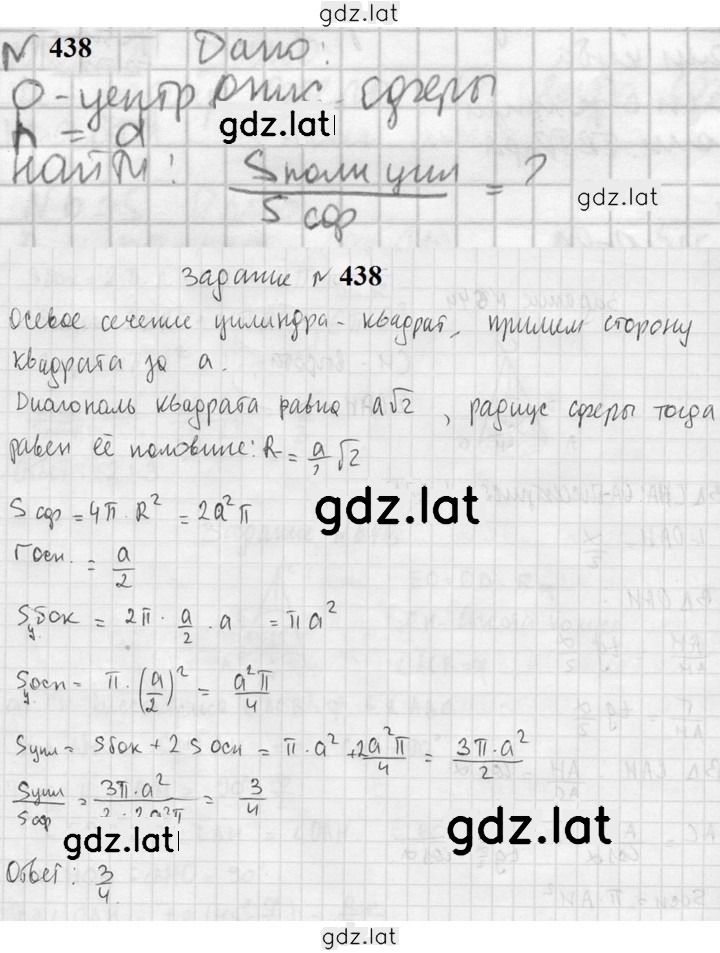 gdz.lat
№ 438 Дано:
О - центр опис. сферы
gdz.lat
h = d
найти: Sполн цил / Sсф = ?
gdz.lat
Задание № 438
Осевое сечение цилиндра - квадрат, примем сторону
квадрата за a.
Диагональ квадрата равна a√2, радиус сферы тогда
равен её половине: R = a/2 √2
S сф = 4π · R² = 2a²π
gdz.lat
rосн. = a/2
Sбок ц. = 2π · a/2 · a = πa²
Sосн ц = π · (a/2)² = a²π/4
Sцил = Sбок + 2 Sосн = π · a² + 2a²π/4 = 3π·a²/2
Sцил/Sсф = 3π·a²/2·2a²π = 3/4
gdz.lat
gdz.lat
Ответ: 3/4.
gdz.lat